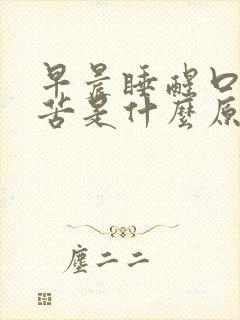 早晨睡醒口
苦是什麼原
塵二二